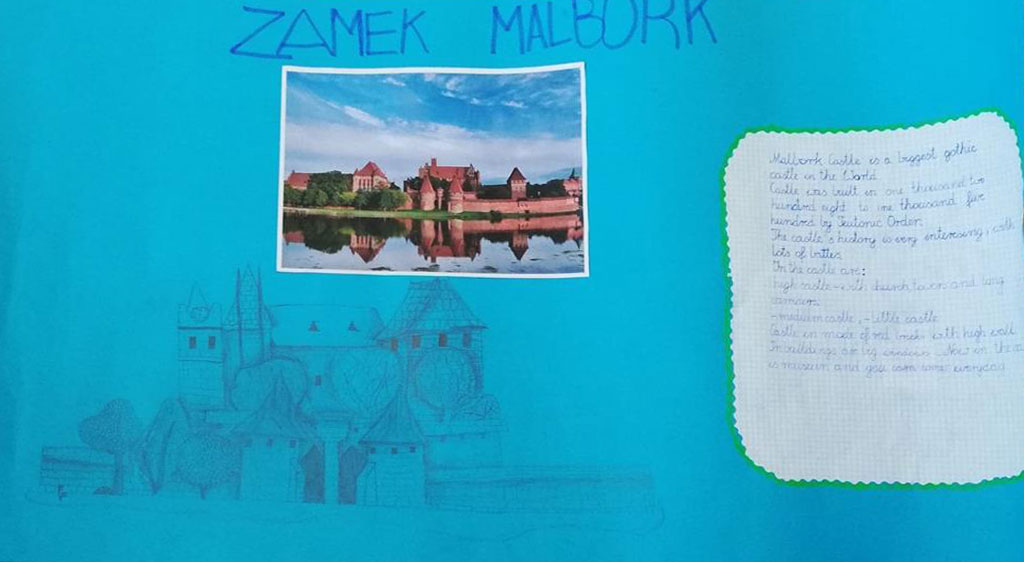 ZAMEK MALBORK
Malbork Castle is a biggest gothic
castle in the World
Castle was built in one thousand two
hundred eight to one thousand five
hundred by Teutonic Order.
The castle's history is very enteresing, with
lots of
In the castle are:
high castle - with church, tower and long

- medium castle, - little castle
Castle is made of red with high wall
In buildings are big windows. Now in the
is museum and you can come everyday